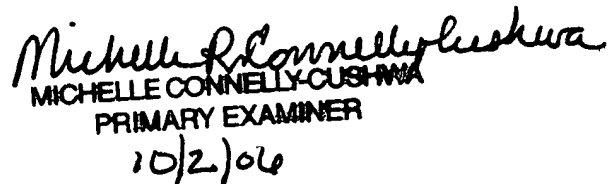 Michelle R. Connelly-Cushwa
MICHELLE CONNELLY-CUSHWA
PRIMARY EXAMINER
10/2/06